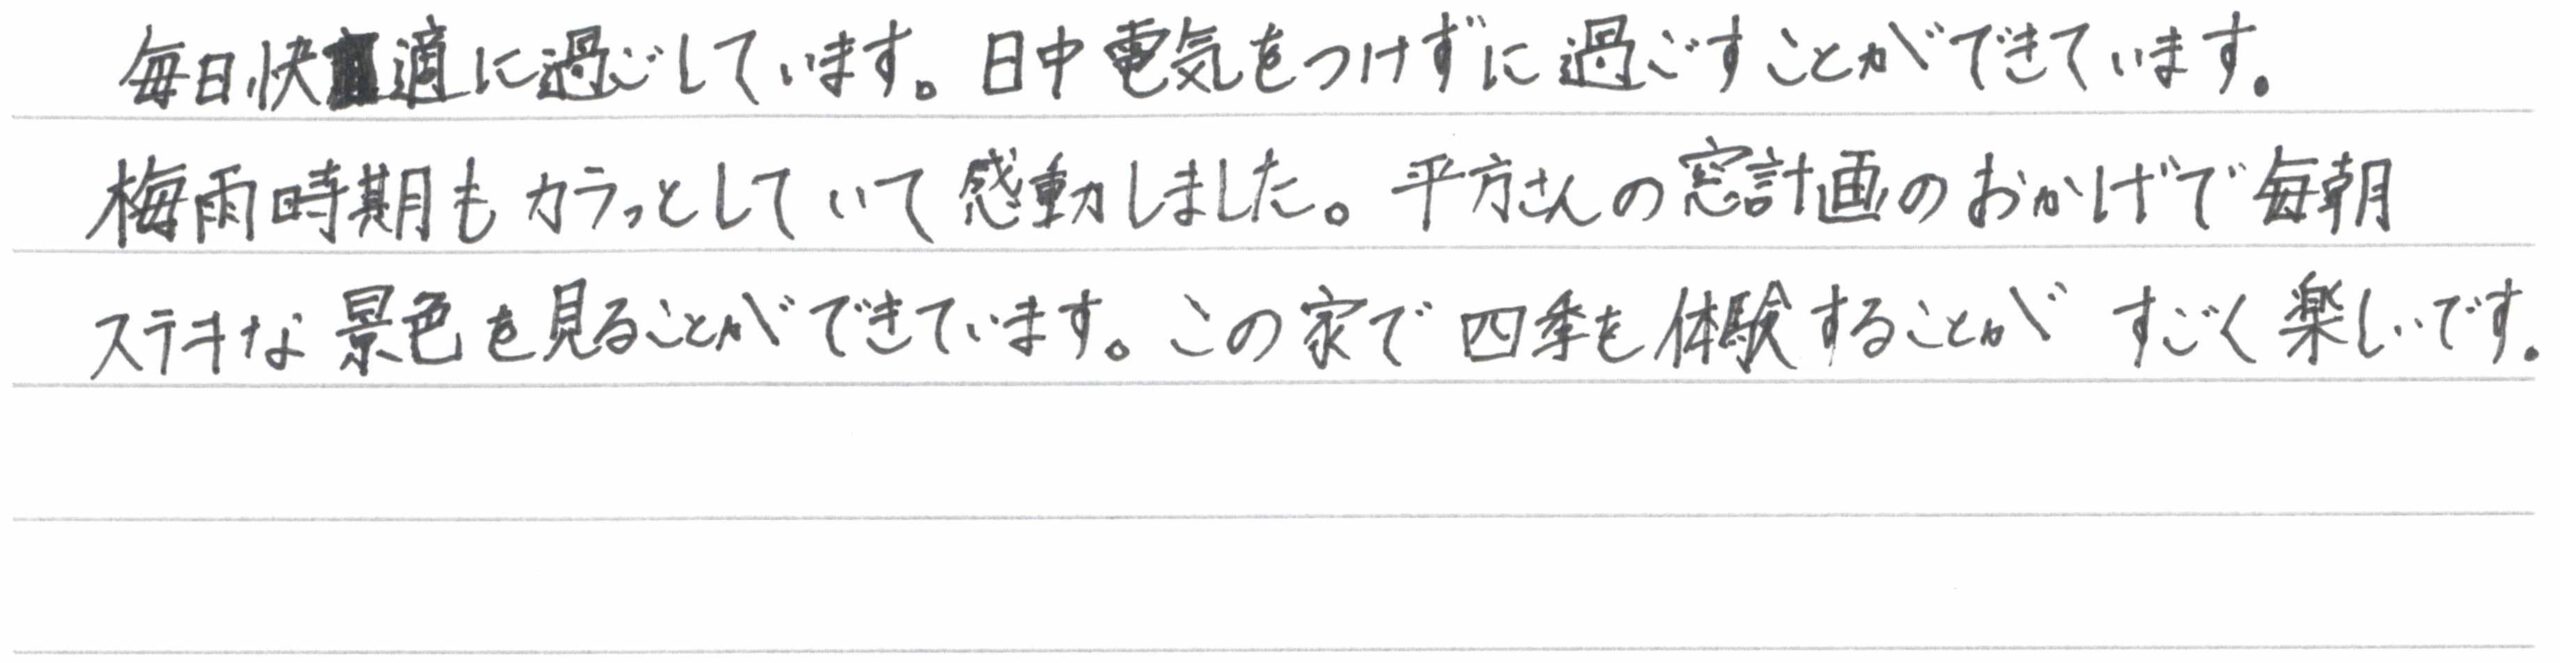 毎日快適に過ごしています。日中電気をつけずに過ごすことができています。
梅雨時期もカラっとしていて感動しました。平方さんの窓計画のおかげで毎朝
ステキな景色を見ることができています。この家で四季を体験することがすごく楽しいです。